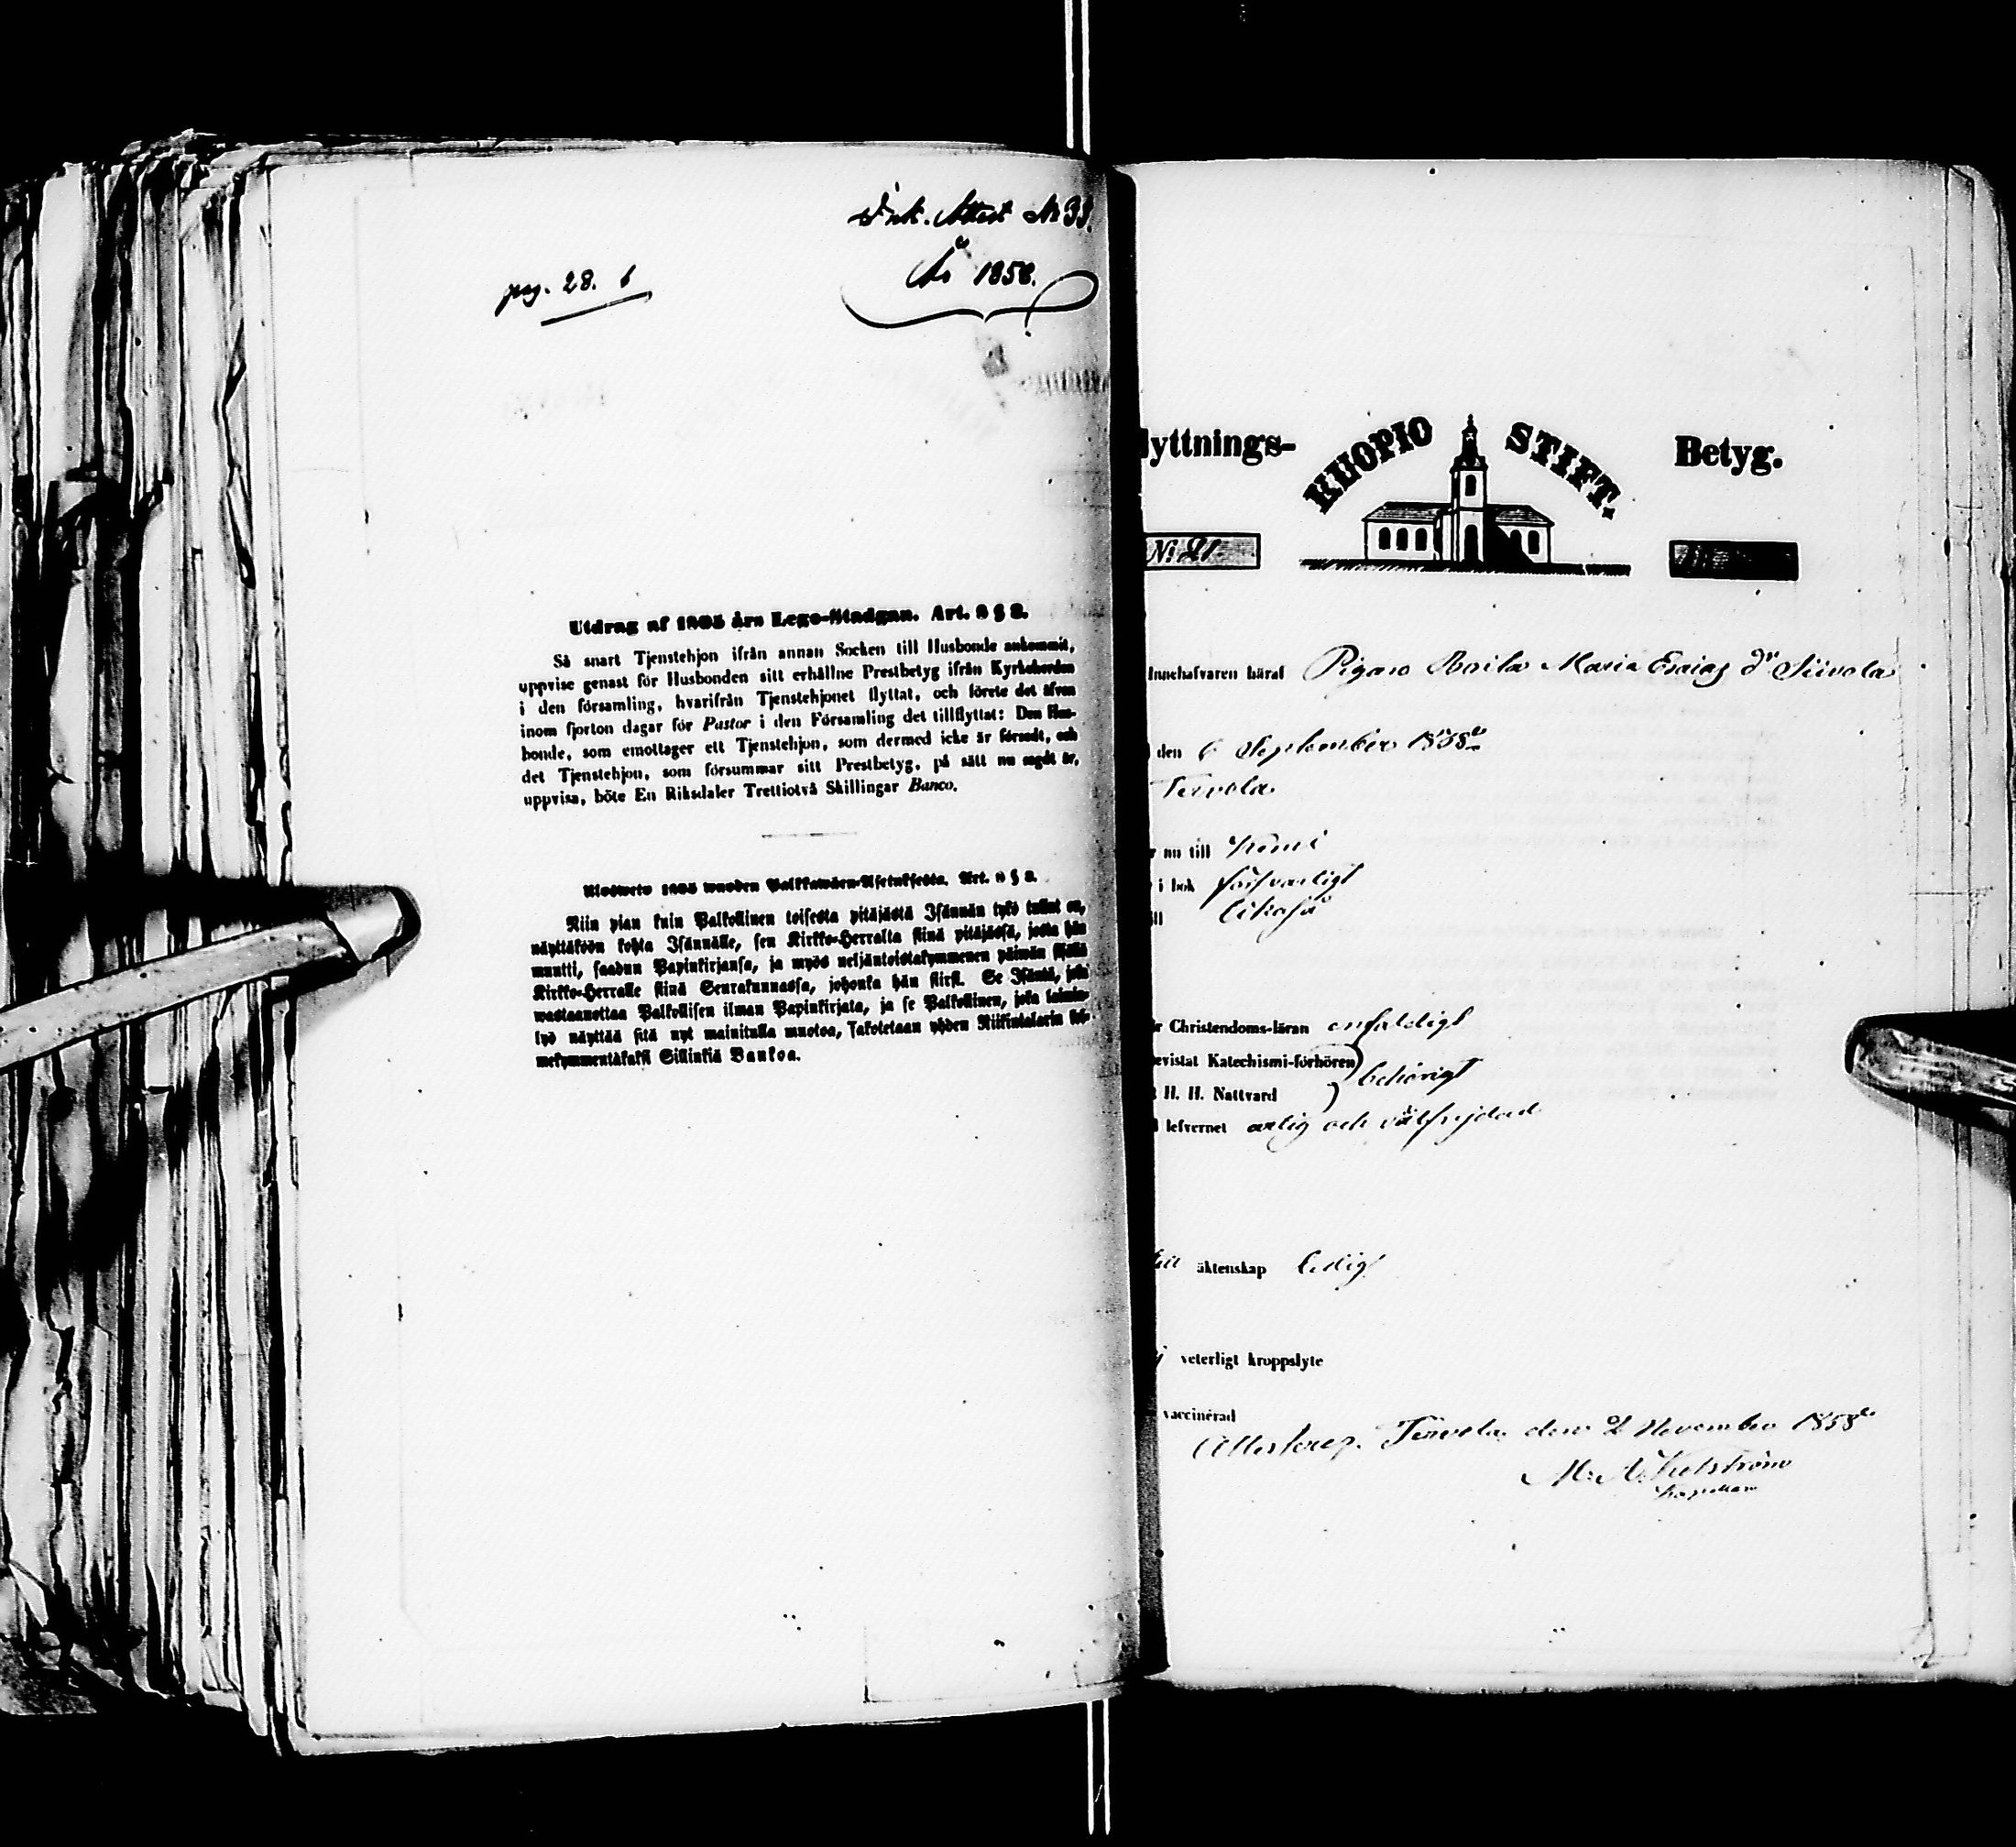 Ink. Attest № 38.
År 1858.
pag. 28.
Utdrag af 1805 års Lego-Stadgan. Art. 8 § 2.
Så snart Tjenstehjon ifrån annan Socken till Husbonde ankommit,
uppvise genast för Husbonden sitt erhållne Prestbetyg ifrån Kyrkoherden
i den församling, hvarifrån Tjenstehjonet flyttat, och förete det äfven
inom fjorton dagar för Pastor i den Församling det tillflyttat: Den Hus-
bonde, som emottager ett Tjenstehjon, som dermed icke är försedt, och
det Tjenstehjon, som försummar sitt Prestbetyg, på sätt nu sagdt är,
uppvisa, böte En Riksdaler Trettiotvå Skillingar Banco.
Ulosweto 1805 wuoden Palkkawäen-Asetuksesta. Art. 8 § 2.
Niin pian kuin Palkollinen toisesta pitäjästä Isännän tykö tullut on,
näyttäköön kohta Isännälle, sen Kirkko-Herralta siinä pitäjässä, josta hän
muutti, saadun Papinkirjansa, ja myös neljäntoistakymmenen päiwän sisällä
Kirkko-Herralle siinä Seurakunnassa, johonka hän siirsi. Se Isäntä, joka
wastaanottaa Palkollisen ilman Papinkirjata, ja se Palkollinen, joka laimin-
lyö näyttää sitä nyt mainitulla muotoa, sakotetaan yhden Riikintalarin kol-
mekymmentäkaksi Sillinkiä Bankoa.
lyttnings- KUOPIO STIFT. Betyg.
N: 21.
Innehafvaren häraf Pigan Maria Esaias dr
den 6 September 1838
Tervola
r nu till Kemi
i bok försvarligt
ll likaså
r Christendoms-läran enfaldigt
evistat Katechismi-förhören
behörigt
H. H. Nattvard
lefvernet ärlig och välfrejdad
till äktenskap ledig
j veterligt kroppslyte
vaccinerad
Attesterar. Tervola den 2 November 1858